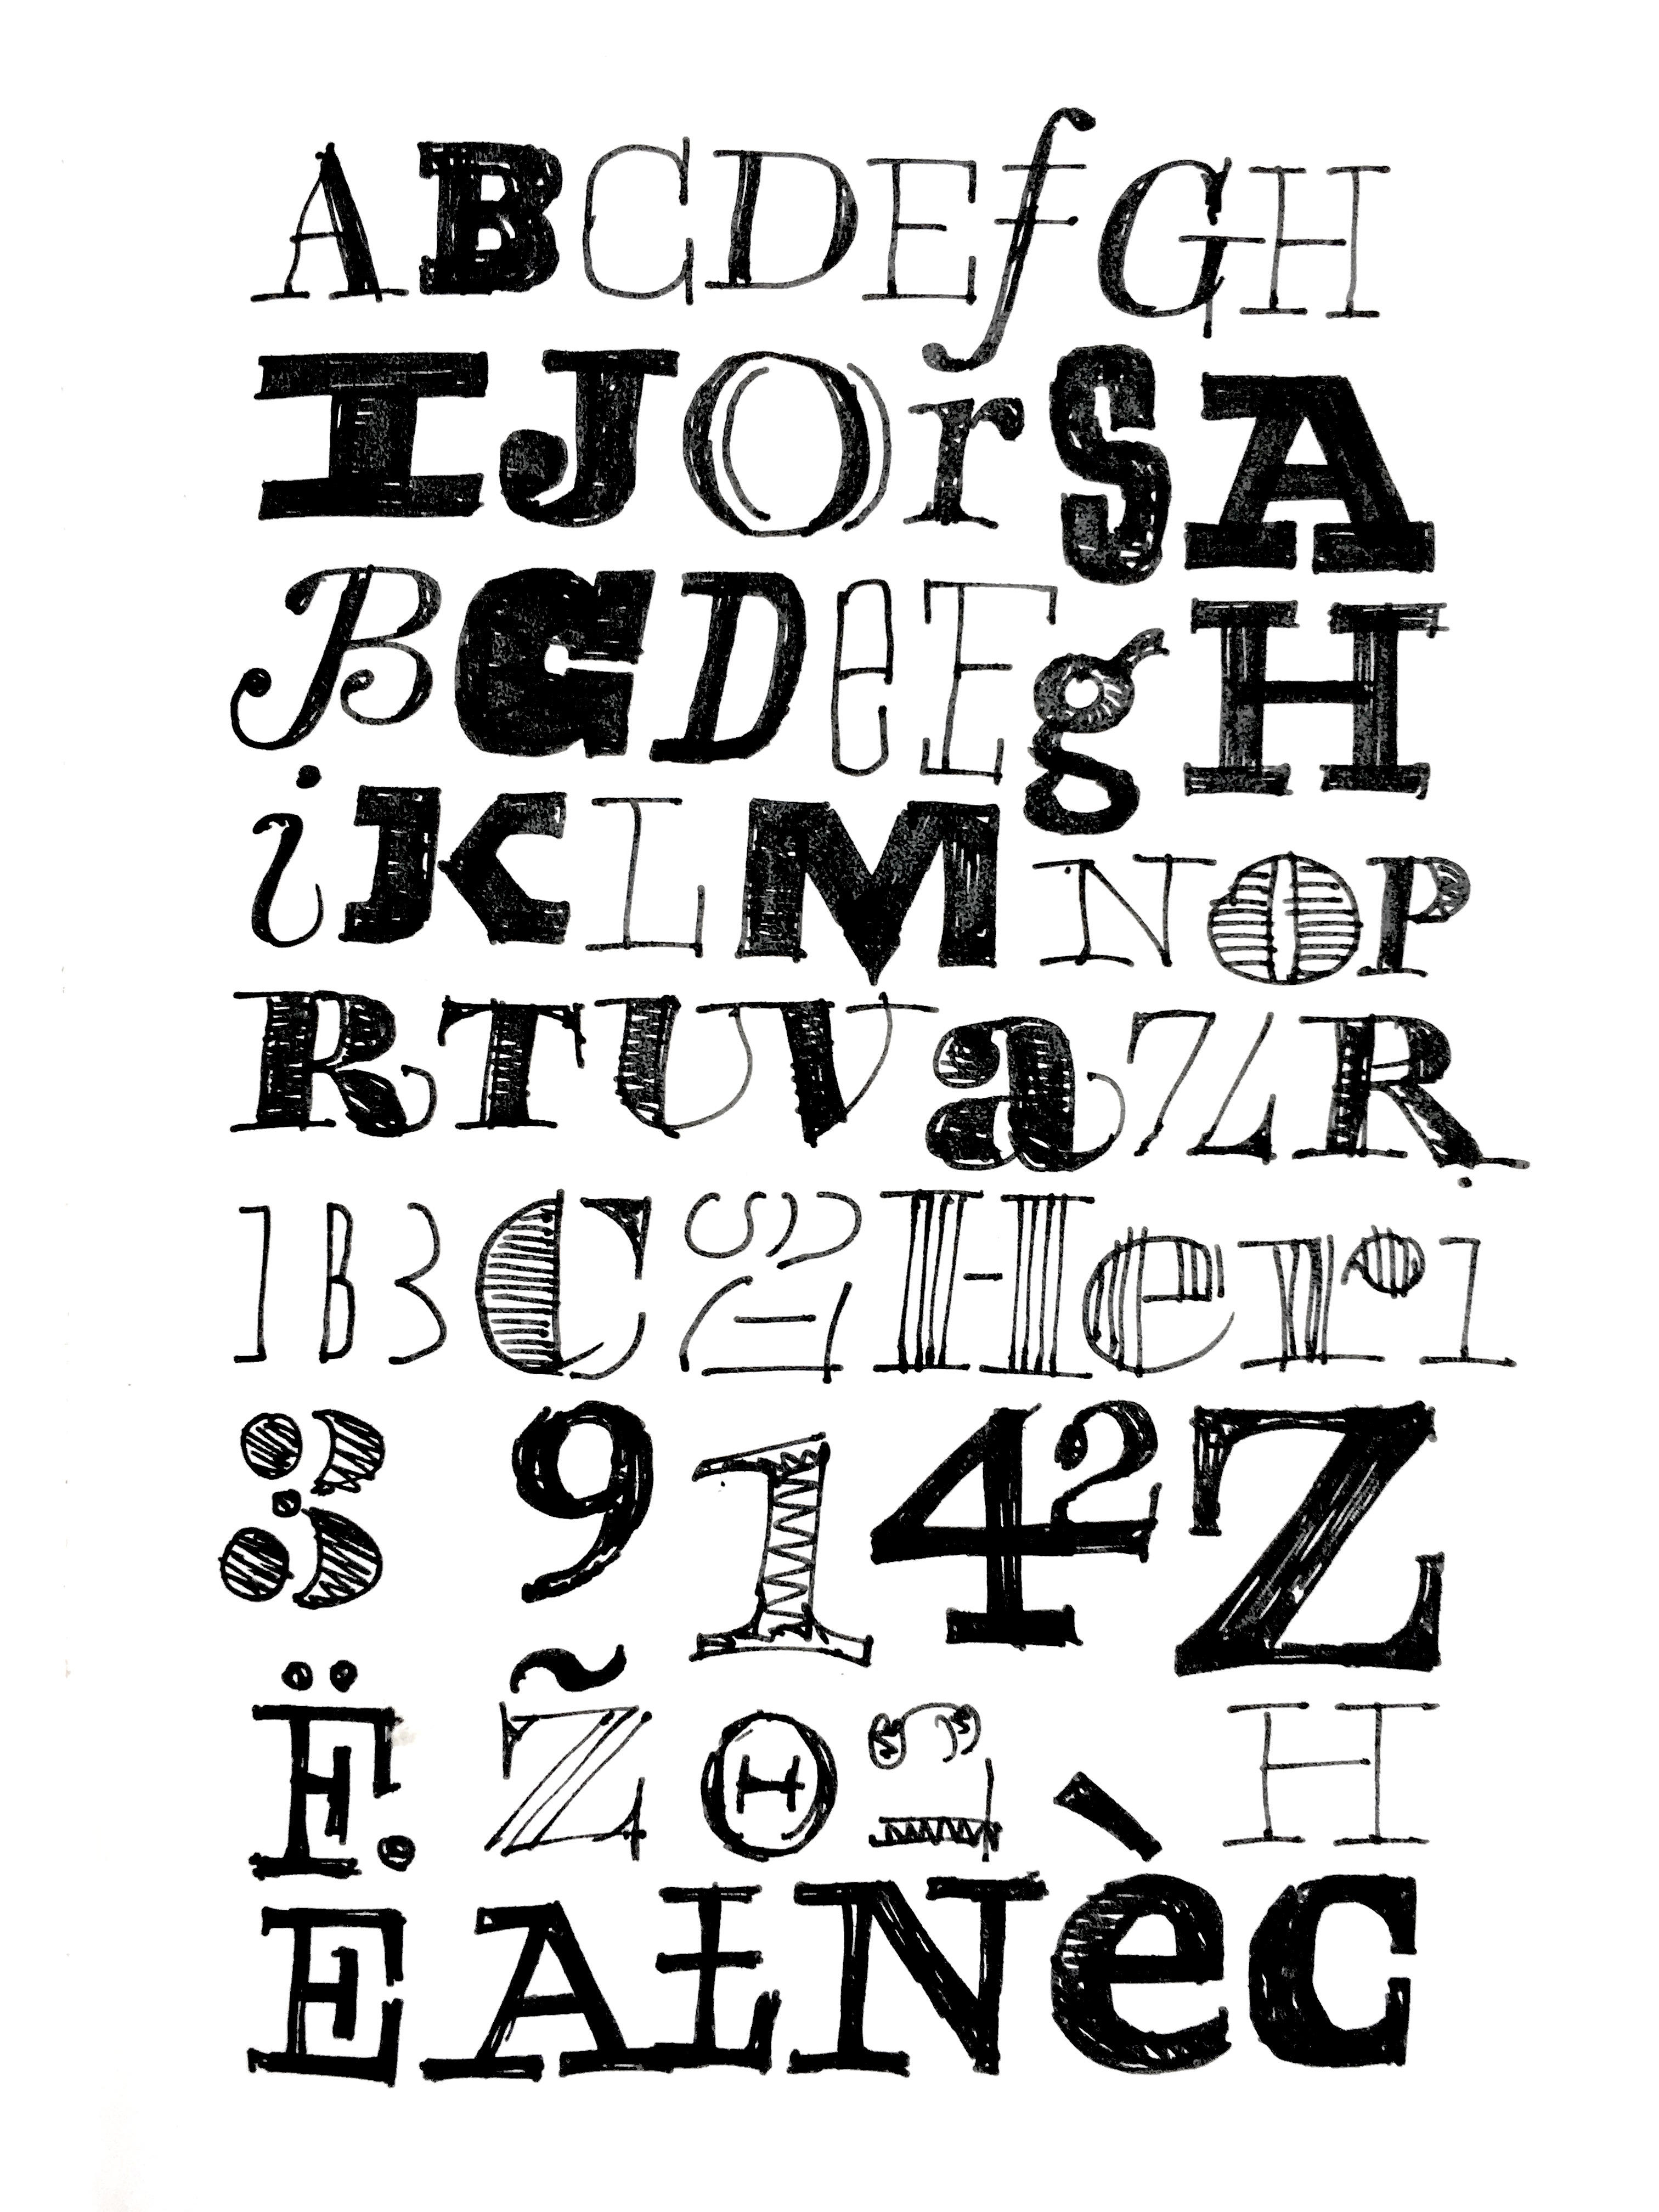 A B C D E f G H
I J O r S A
B G D e F g H
i K L M N O P
R T U V a Z R
] B 3 C H e r 1
3 9 1 4 2 Z
Ë Z̃ O H H
E A Ł N è C